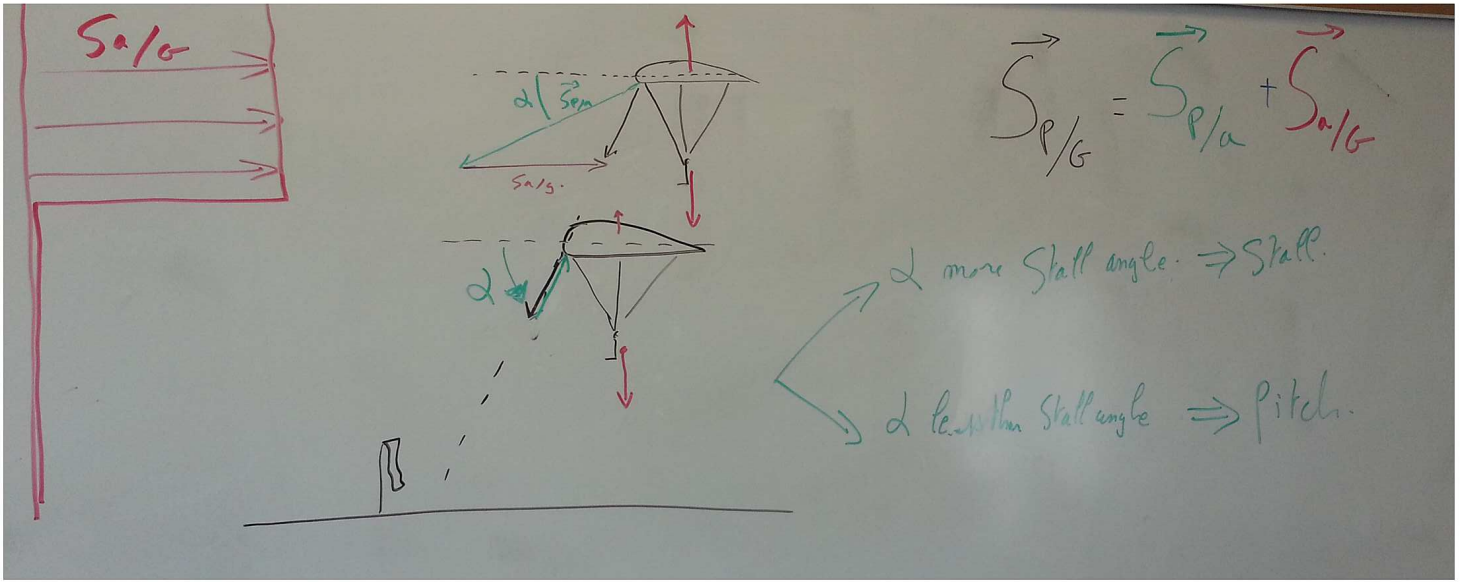 Sa/G
S P/G = S P/a + S a/G
α
Sa/g.
α more Stall angle. ⇒ Stall.
α
α less than Stall angle ⇒ pitch.